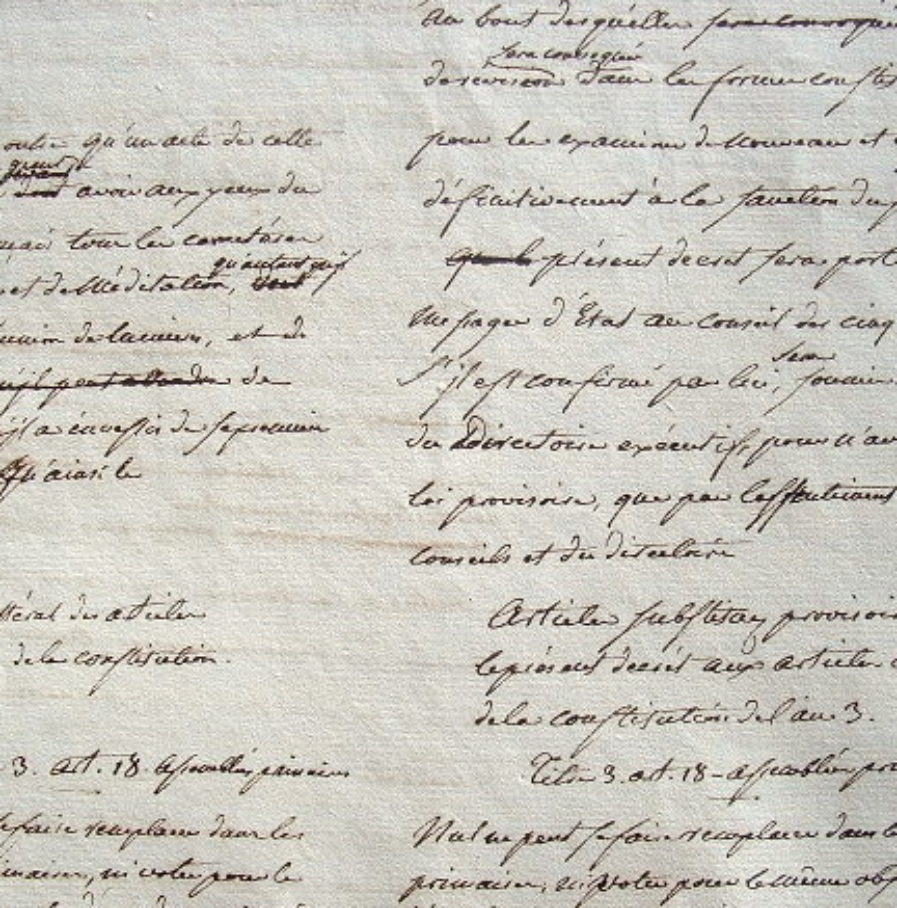 outre qu'un acte de cette
avoir aux yeux du
tous les caractères
qu'autant qu'il
et de méditation,
réunion de lumières, et de
qu'il peut attendre de
qu'il a envessi de sa première
Qu'ainsi le
littéral des articles
de la constitution.
3. art. 18. assemblées primaires
se faire remplacer dans les
primaires, ni voter pour le
au bout desquelles sera convoquée
sera convoquée
de revision dans les formes const
pour les examiner de nouveau et
définitivement à la sanction du
que le présent decret sera porté
Messager d'État au conseil des cinq
sera
S'il est confirmé par lui, soumis
du Directoire exécutif, pour n'av
loi provisoire, que par l'assentiment
conseils et du directoire
Articles substitués provisoir
le présent decrét aux articles
de la constitution de l'an 3.
Titre 3. art. 18 - assemblées pri
Nul ne peut se faire remplacer dans le
primaires, ni voter pour le même obj